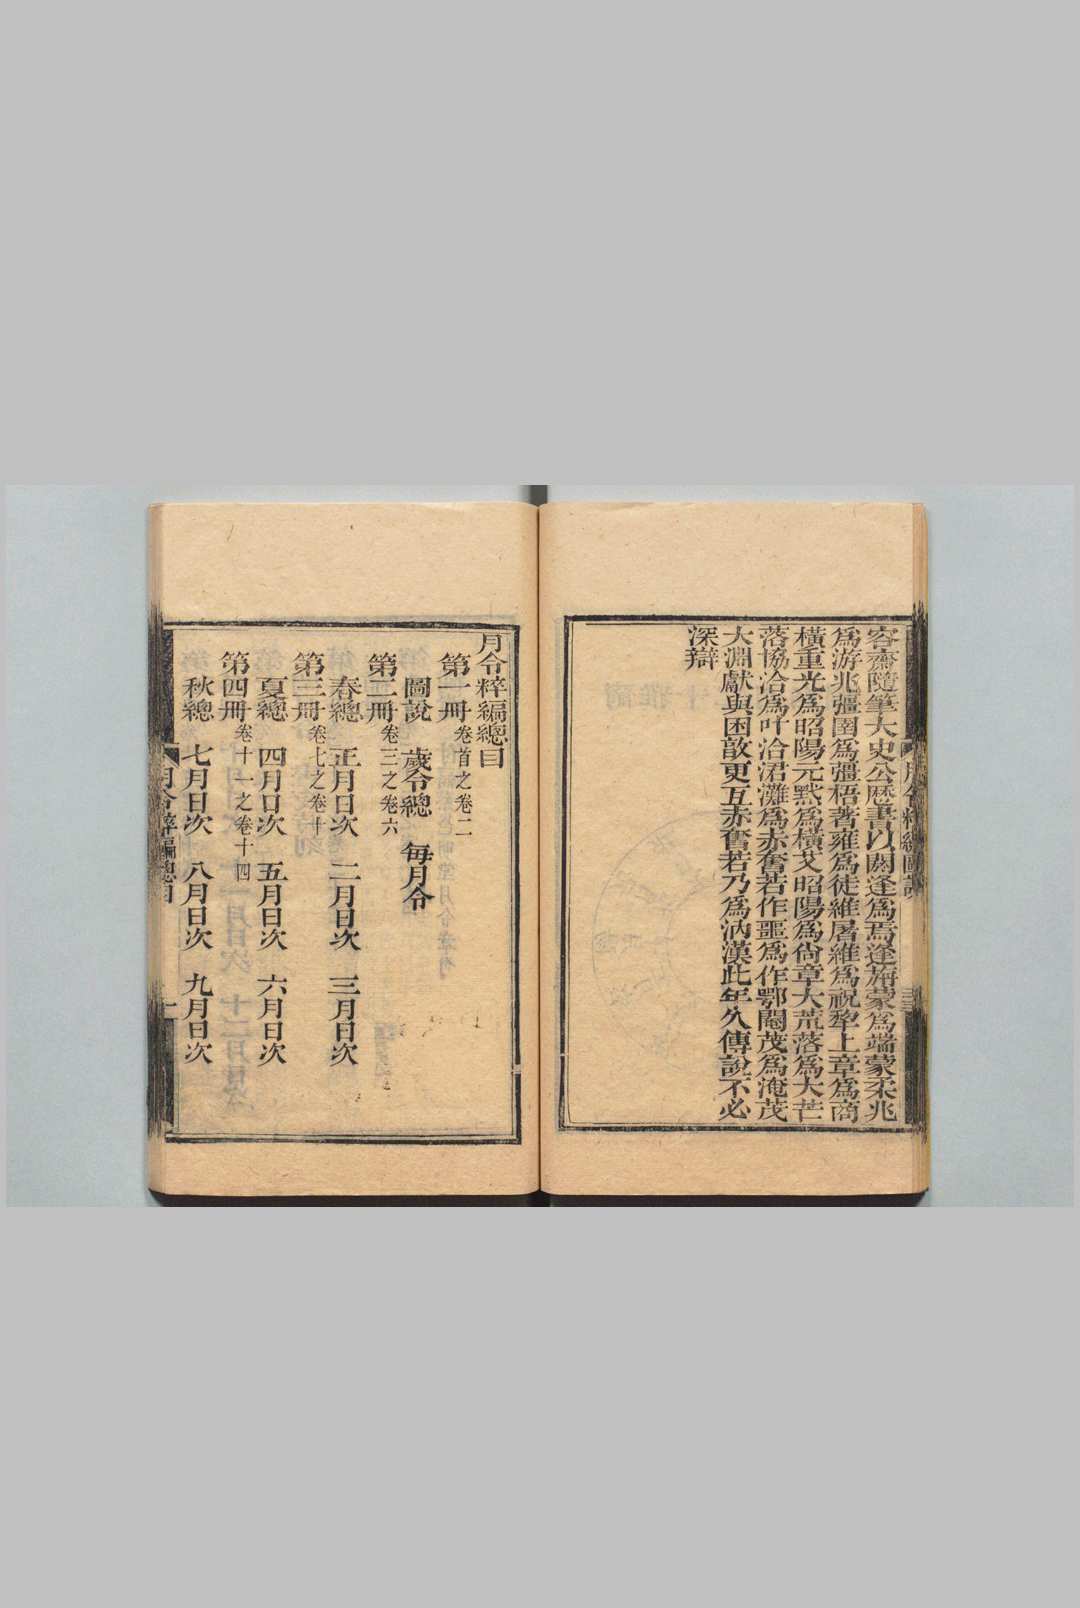 容齋隨筆大史公曆書以閼逢爲焉逢旃蒙爲端蒙柔兆
爲游兆彊圉爲彊梧著雍爲徒維屠維爲祝犂上章爲商
橫重光爲昭陽元黓爲橫艾昭陽爲尙章大荒落爲大芒
落協洽爲叶洽涒灘爲赤奮若作噩爲作鄂閹茂爲淹茂
大淵獻與困敦更互赤奮若乃爲汭漢此年久傳說不必
深辯
月令粹編總目
第一冊卷首之卷二
圖說 歲令總 每月令
第二冊卷三之卷六
春總 正月日次 二月日次 三月日次
第三冊卷七之卷十
夏總 四月日次 五月日次 六月日次
第四冊卷十一之卷十四
秋總 七月日次 八月日次 九月日次
月令粹編總目 一